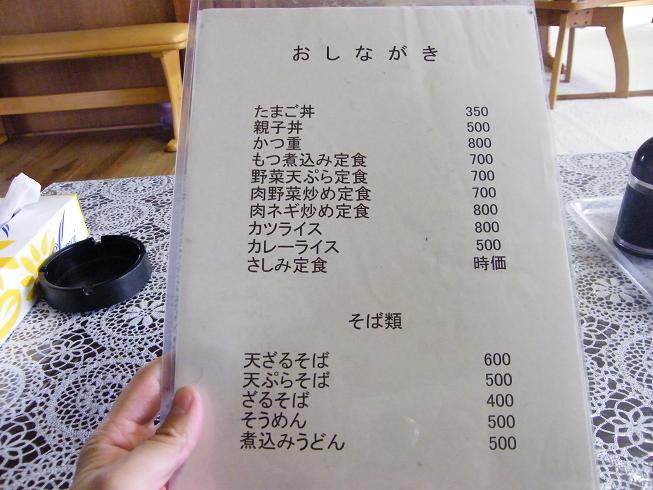 おしながき
たまご丼 350
親子丼 500
かつ重 800
もつ煮込み定食 700
野菜天ぷら定食 700
肉野菜炒め定食 700
肉ネギ炒め定食 800
カツライス 800
カレーライス 500
さしみ定食 時価
そば類
天ざるそば 600
天ぷらそば 500
ざるそば 400
そうめん 500
煮込みうどん 500